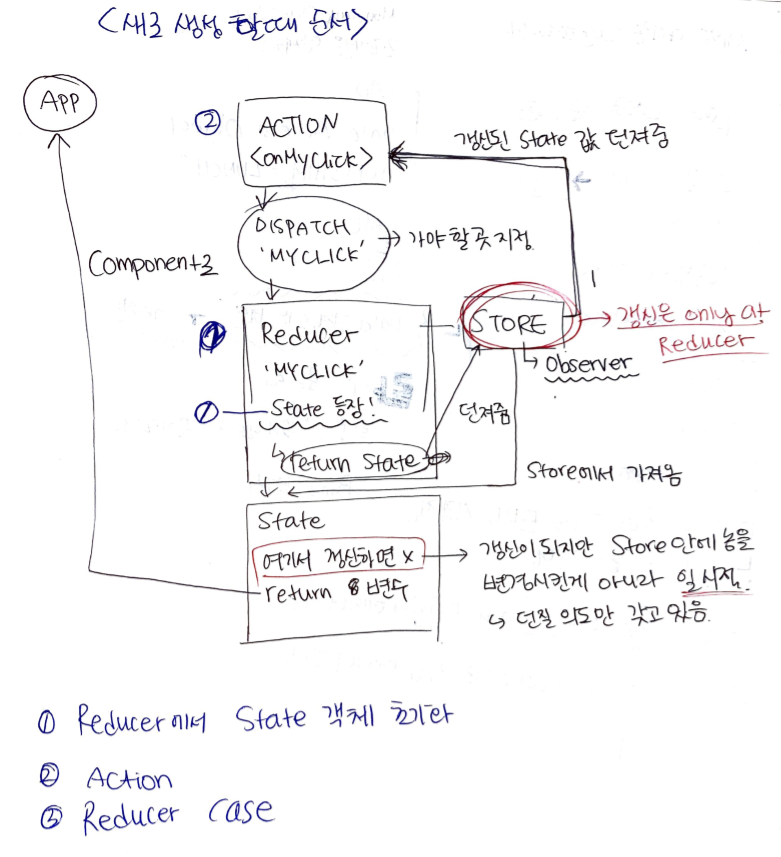 <새로 생성 할때 순서>
APP
②
ACTION
<onMyClick>
갱신된 State 값 던져줌
DISPATCH
'MYCLICK'
→ 가야 할 곳 지정
Component로
Reducer
'MYCLICK'
① State 등장!
return State
STORE
→ 갱신은 only at
Reducer
↳ Observer
던져줌
Store에서 가져옴
State
여기서 갱신하면 x
return 변수
→ 갱신이 되지만 Store 안에 놈을
변경시킨게 아니라 일시적.
↳ 던질 의도만 갖고 있음.
① Reducer에서 State 객체 초기화
② Action
③ Reducer case